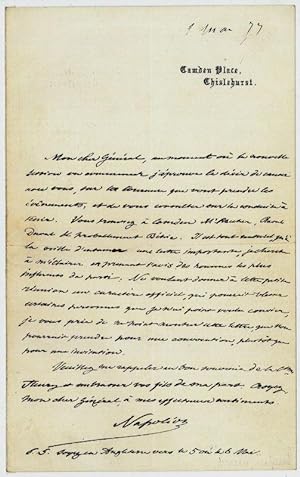 1 Mai 77
Camden Place,
Chislehurst.
Mon cher Général, au moment où la nouvelle
session va commencer j'éprouve le désir de causer
avec vous, sur la tournure que vont prendre les
événements, et de vous consulter sur la conduite à
tenir. Vous trouverez à Camden Mr Rouher, Raoul
Duval et probablement Il est tout naturel qu'à
la veille d'entamer une lutte importante, je cherche
à m'éclairer en prenant l'avis des hommes les plus
du parti. Ne voulant donner à cette petite
réunion un caractère officiel, qui pourrait blesser
certaines personnes que je n'ai point voulu convier,
je vous prie de ne point montrer cette lettre, que l'on
pourrait prendre pour une convocation, plutôt que
pour une invitation.
Veuillez me rappeler au bon souvenir de la
Fleury et embrasser vos fils de ma part. Croyez
mon cher Général, à mes affectueux sentiments
Napoléon
P.S. Soyez en Angleterre vers le 5 ou le 6 Mai